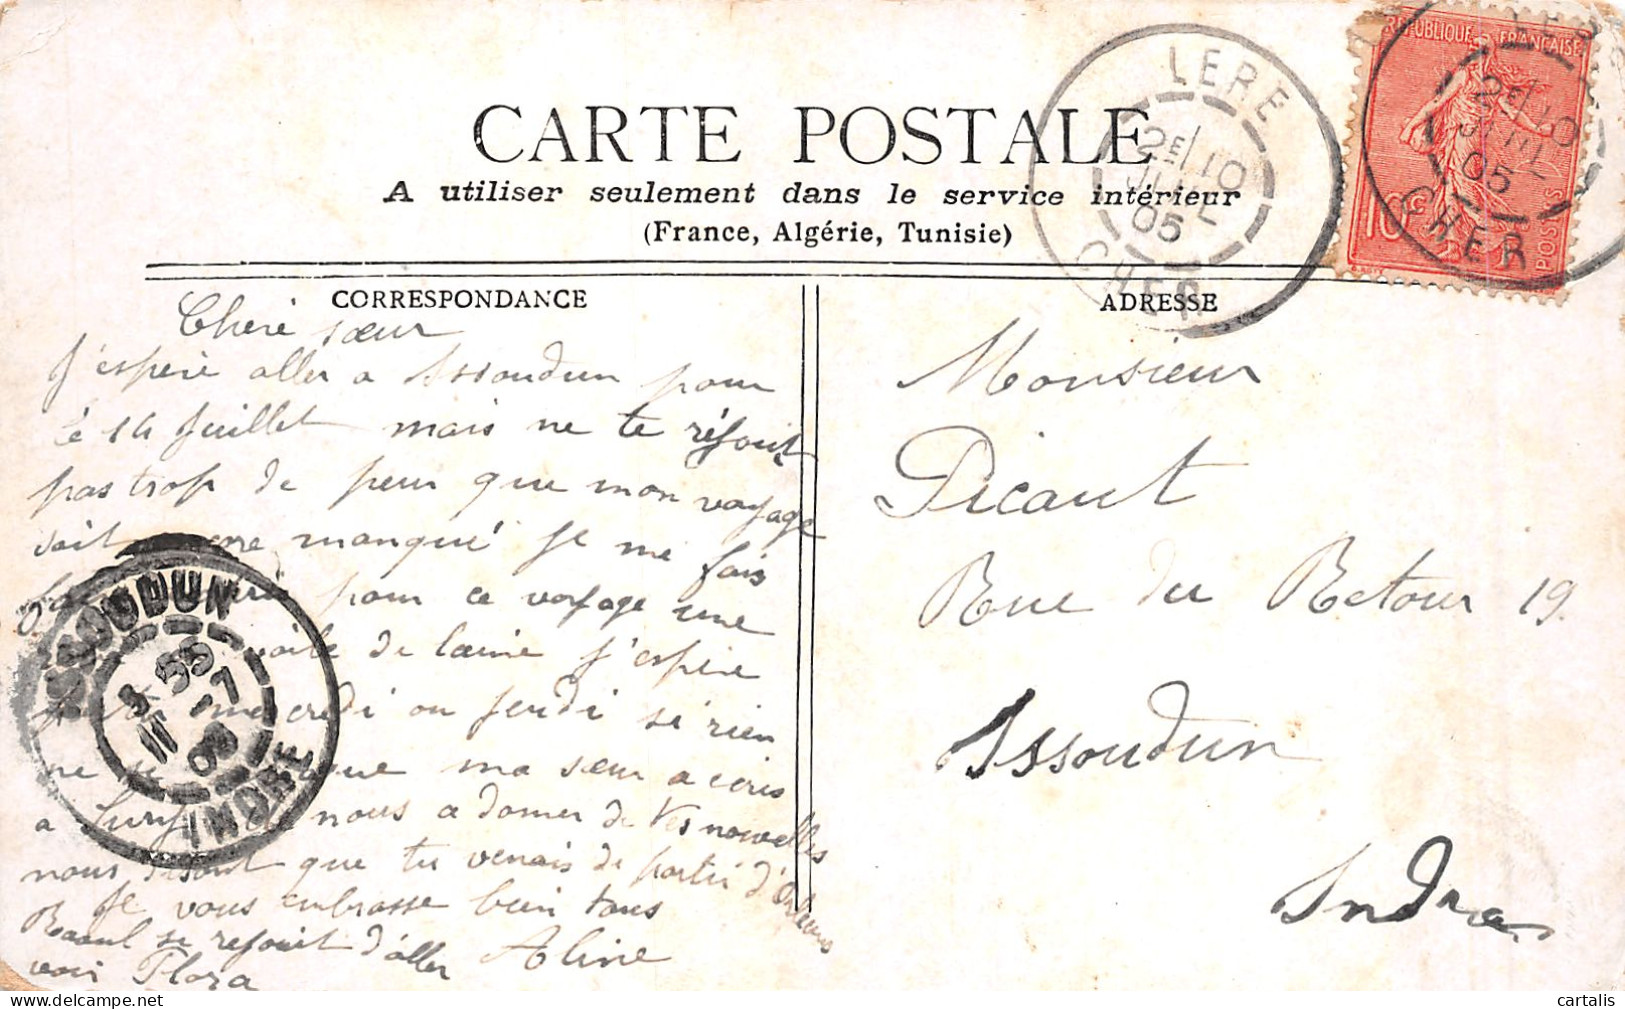 CARTE POSTALE
A utiliser seulement dans le service intérieur
(France, Algérie, Tunisie)
CORRESPONDANCE
ADRESSE
REPUBLIQUE FRANÇAISE
10c
POSTES
LERE
2E/10
JUIL
05
CHER
2E/10
JUIL
05
CHER
Chère sœur
J'espère aller a Issoudun pour
le 14 Juillet mais ne te réjouit
pas trop de peur que mon voyage
soit manqué je me fais
pour ce voyage une
voile de laine j'espère
mercredi ou jeudi si rien
ne ma sœur a écris
a nous a donner de tes nouvelles
nous disant que tu venais de partir d'Orléans
Je vous embrasse bien tous
Raoul se rejouit d'aller Aline
voir Flora
ISSOUDUN
INDRE
Monsieur
Picaut
Rue du Retour 19
Issoudun
Indre
cartalis
delcampe.net